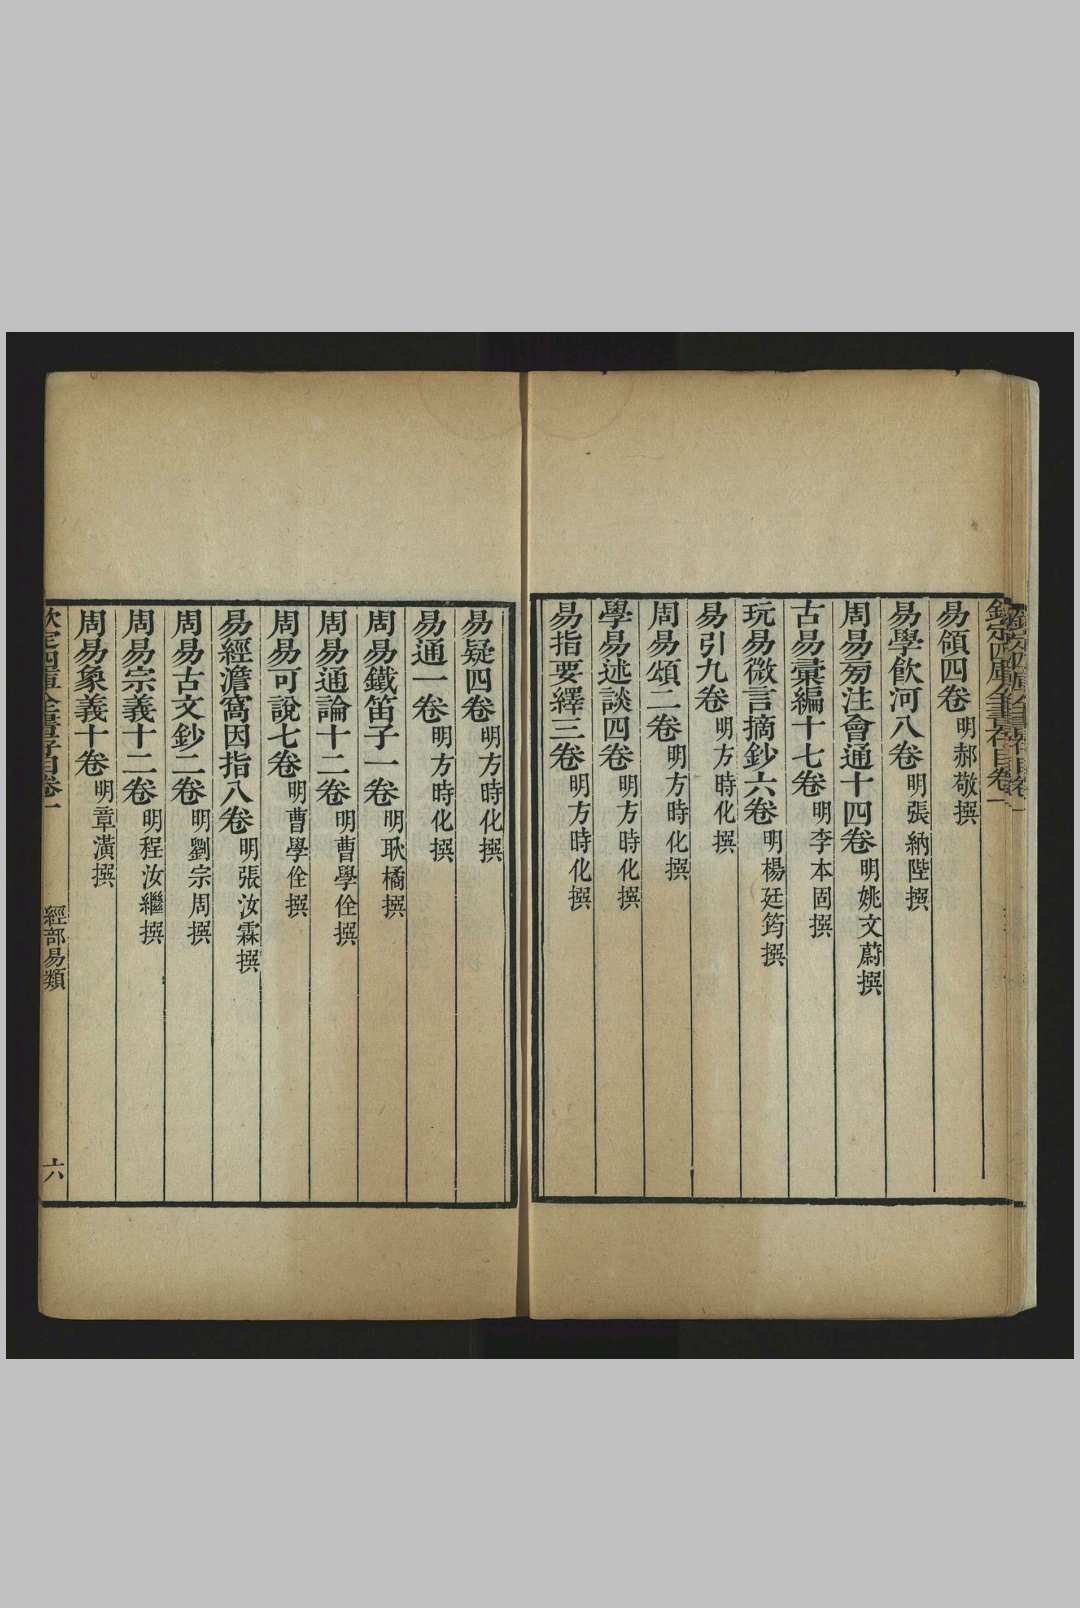 欽定四庫全書存目卷一
易領四卷明郝敬撰
易學飮河八卷明張納陛撰
周易旁注會通十四卷明姚文蔚撰
古易彙編十七卷明李本固撰
玩易微言摘鈔六卷明楊廷筠撰
易引九卷明方時化撰
周易頌二卷明方時化撰
學易述談四卷明方時化撰
易指要繹三卷明方時化撰
易疑四卷明方時化撰
易通一卷明方時化撰
周易鐵笛子一卷明耿橘撰
周易通論十二卷明曹學佺撰
周易可說七卷明曹學佺撰
易經澹窩因指八卷明張汝霖撰
周易古文鈔二卷明劉宗周撰
周易宗義十二卷明程汝繼撰
周易象義十卷明章潢撰
欽定四庫全書存目卷一 經部易類 六